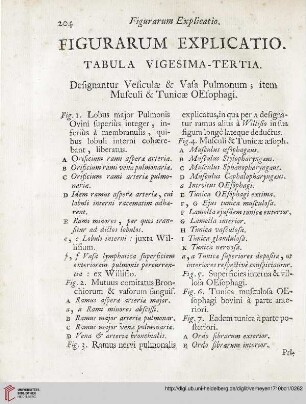 204 Figurarum Explicatio.
FIGURARUM EXPLICATIO.
TABULA VIGESIMA-TERTIA.
Designantur Vesiculæ & Vasa Pulmonum, item
Musculi & Tunicæ OEsophagi.
Fig. 1. Lobus major Pulmonis
Ovini superius integer, in-
ferius à membranulis, qui-
bus lobuli interni cohære-
bant, liberatus.
A Orificium rami asperæ arteriæ.
B Orificium rami venæ pulmonariæ.
C Orificium rami arteriæ pulmo-
nariæ.
D Idem ramus asperæ arteriæ, cui
lobuli interni racematim adhæ-
rent.
E Rami minores, per quos tran-
situr ad dictos lobulos.
e, e Lobuli interni: juxta Wil-
lisium.
f, f Vasa lymphatica superficiem
exteriorem pulmonis percurren-
tia: ex Willisio.
Fig. 2. Mutuus comitatus Bron-
chiorum & vasorum sanguif.
A Ramus asperæ arteriæ major.
a, a Rami minores abscissi.
B Ramus major arteriæ pulmonar.
C Ramus major venæ pulmonariæ.
D Vena & arteria bronchialis.
Fig. 3. Ramus nervi pulmonalis
explicatus, in qua per a designa-
tur ramus alius à Willisio in sua
figura longè lateque deductus.
Fig. 4. Musculi & Tunicæ œsoph.
A Musculus œsophagæus.
B Musculus Stylopharyngæus.
C Musculus Sphenopharyngæus.
D Musculus Cephalopharyngæus.
d Introitus OEsophagi.
E Tunica OEsophagi extima.
F, G Ejus tunica musculosa.
F Lamella ejusdem tunicæ exterior.
G Lamella interior.
H Tunica vasculosa.
I Tunica glandulosa.
K Tunica nervosa.
a, a Tunicæ superiores depositæ, ut
interiores in conspectum veniant.
Fig. 5. Superficies interna & vil-
losa OEsophagi.
Fig. 6. Tunica musculosa OE-
sophagi bovini à parte ante-
riori.
Fig. 7. Eadem tunica à parte po-
steriori.
A Ordo fibrarum exterior.
B Ordo fibrarum interior.
http://digi.ub.uni-heidelberg.de/diglit/verheyen1710bd1/0262
UNIVERSITÄTS-
BIBLIOTHEK
HEIDELBERG